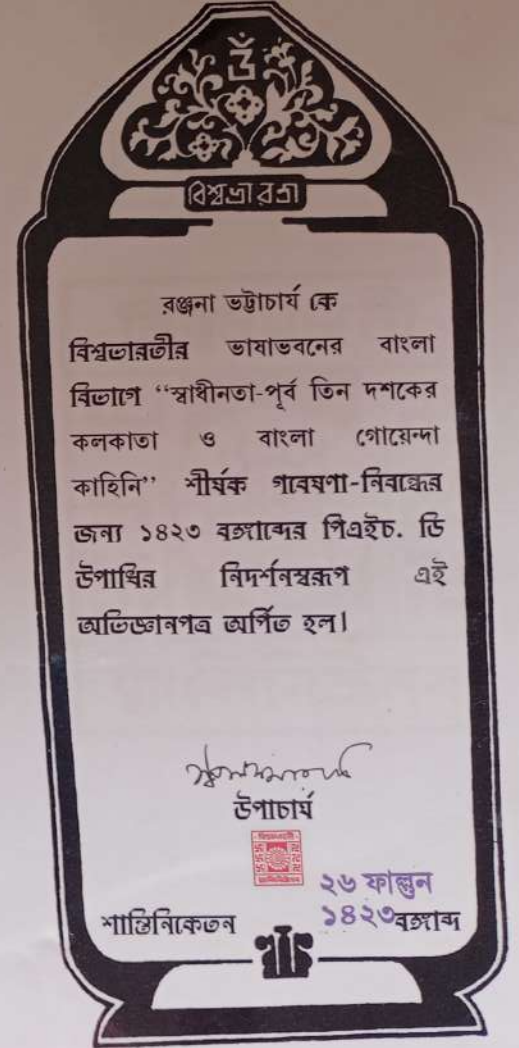 ওঁ
বিশ্বভারতী
রঞ্জনা ভট্টাচার্য কে
বিশ্বভারতীর ভাষাভবনের বাংলা
বিভাগে “স্বাধীনতা-পূর্ব তিন দশকের
কলকাতা ও বাংলা গোয়েন্দা
কাহিনি” শীর্ষক গবেষণা-নিবন্ধের
জন্য ১৪২৩ বঙ্গাব্দের পিএইচ. ডি
উপাধির নিদর্শনস্বরূপ এই
অভিজ্ঞানপত্র অর্পিত হল।
উপাচার্য
২৬ ফাল্গুন
শান্তিনিকেতন ১৪২৩ বঙ্গাব্দ